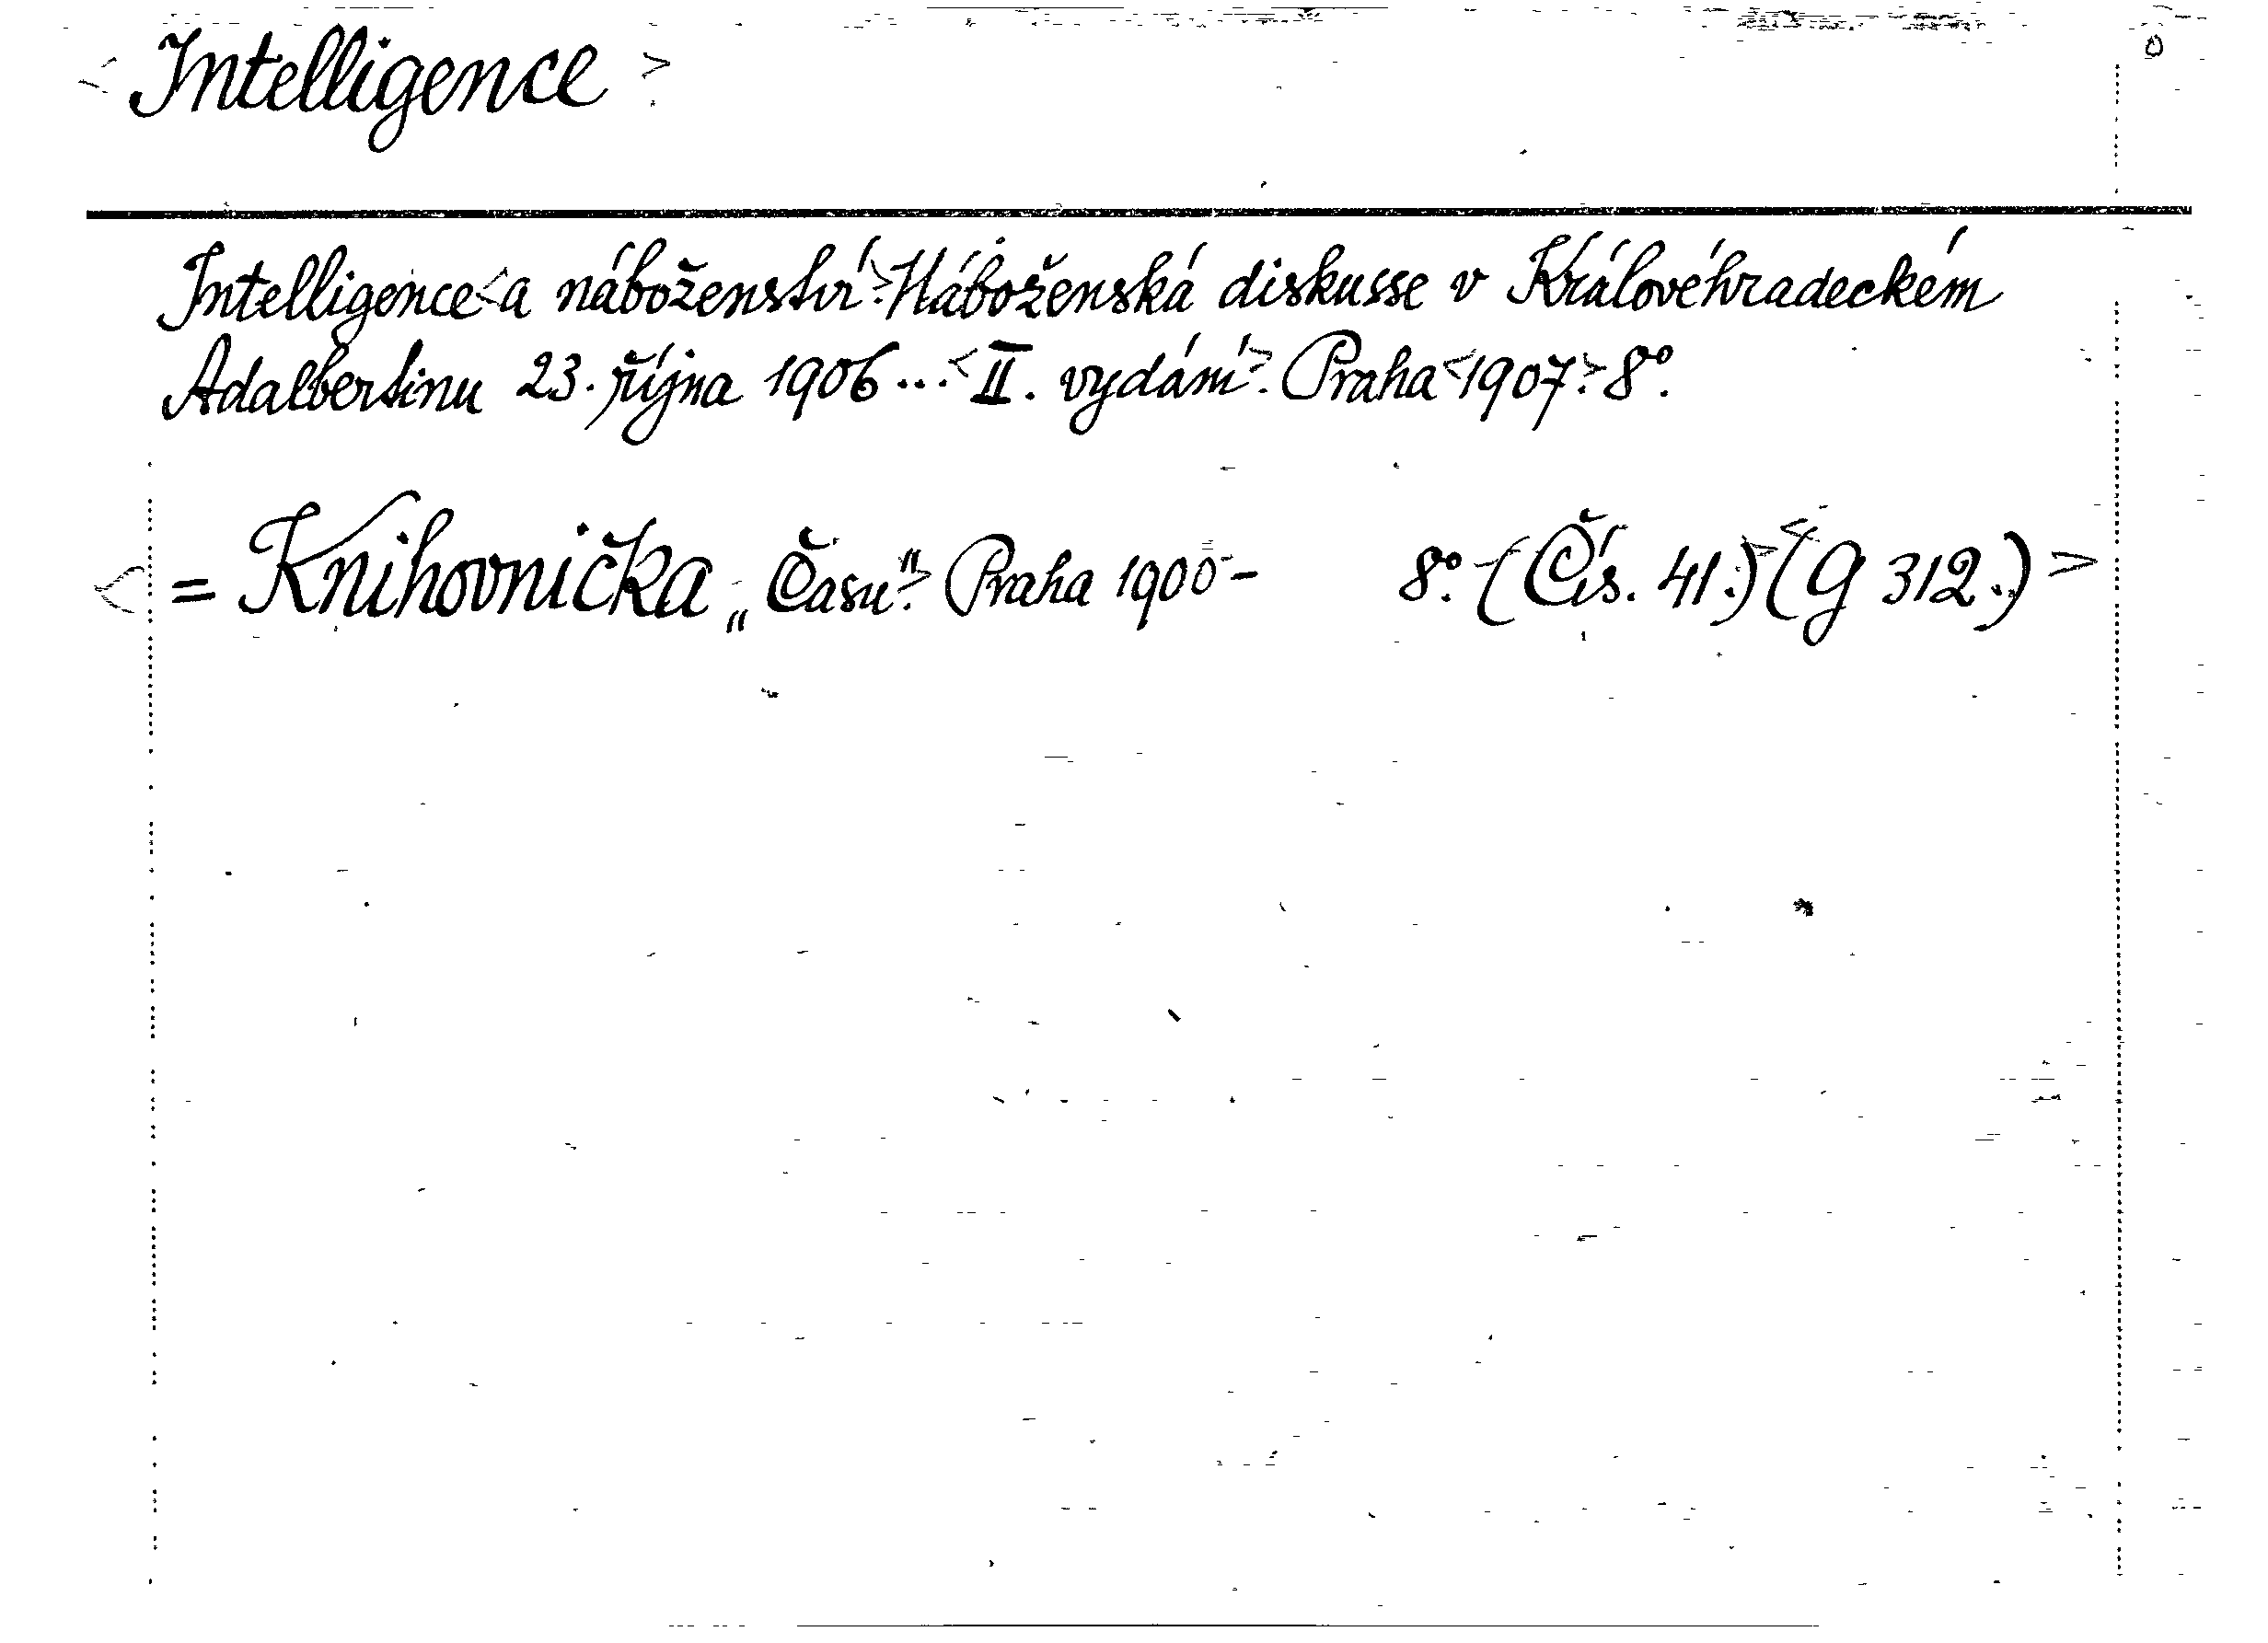 <Intelligence>
Intelligence <a náboženství>. Náboženská diskusse v Královéhradeckém
Adalbertinu 23. října 1906 ... <II. vydání>. Praha <1907>. 8°.
<= Knihovnička „Času“>. Praha 1900- 8°. (Čís. 41.)> <(G 312.)>